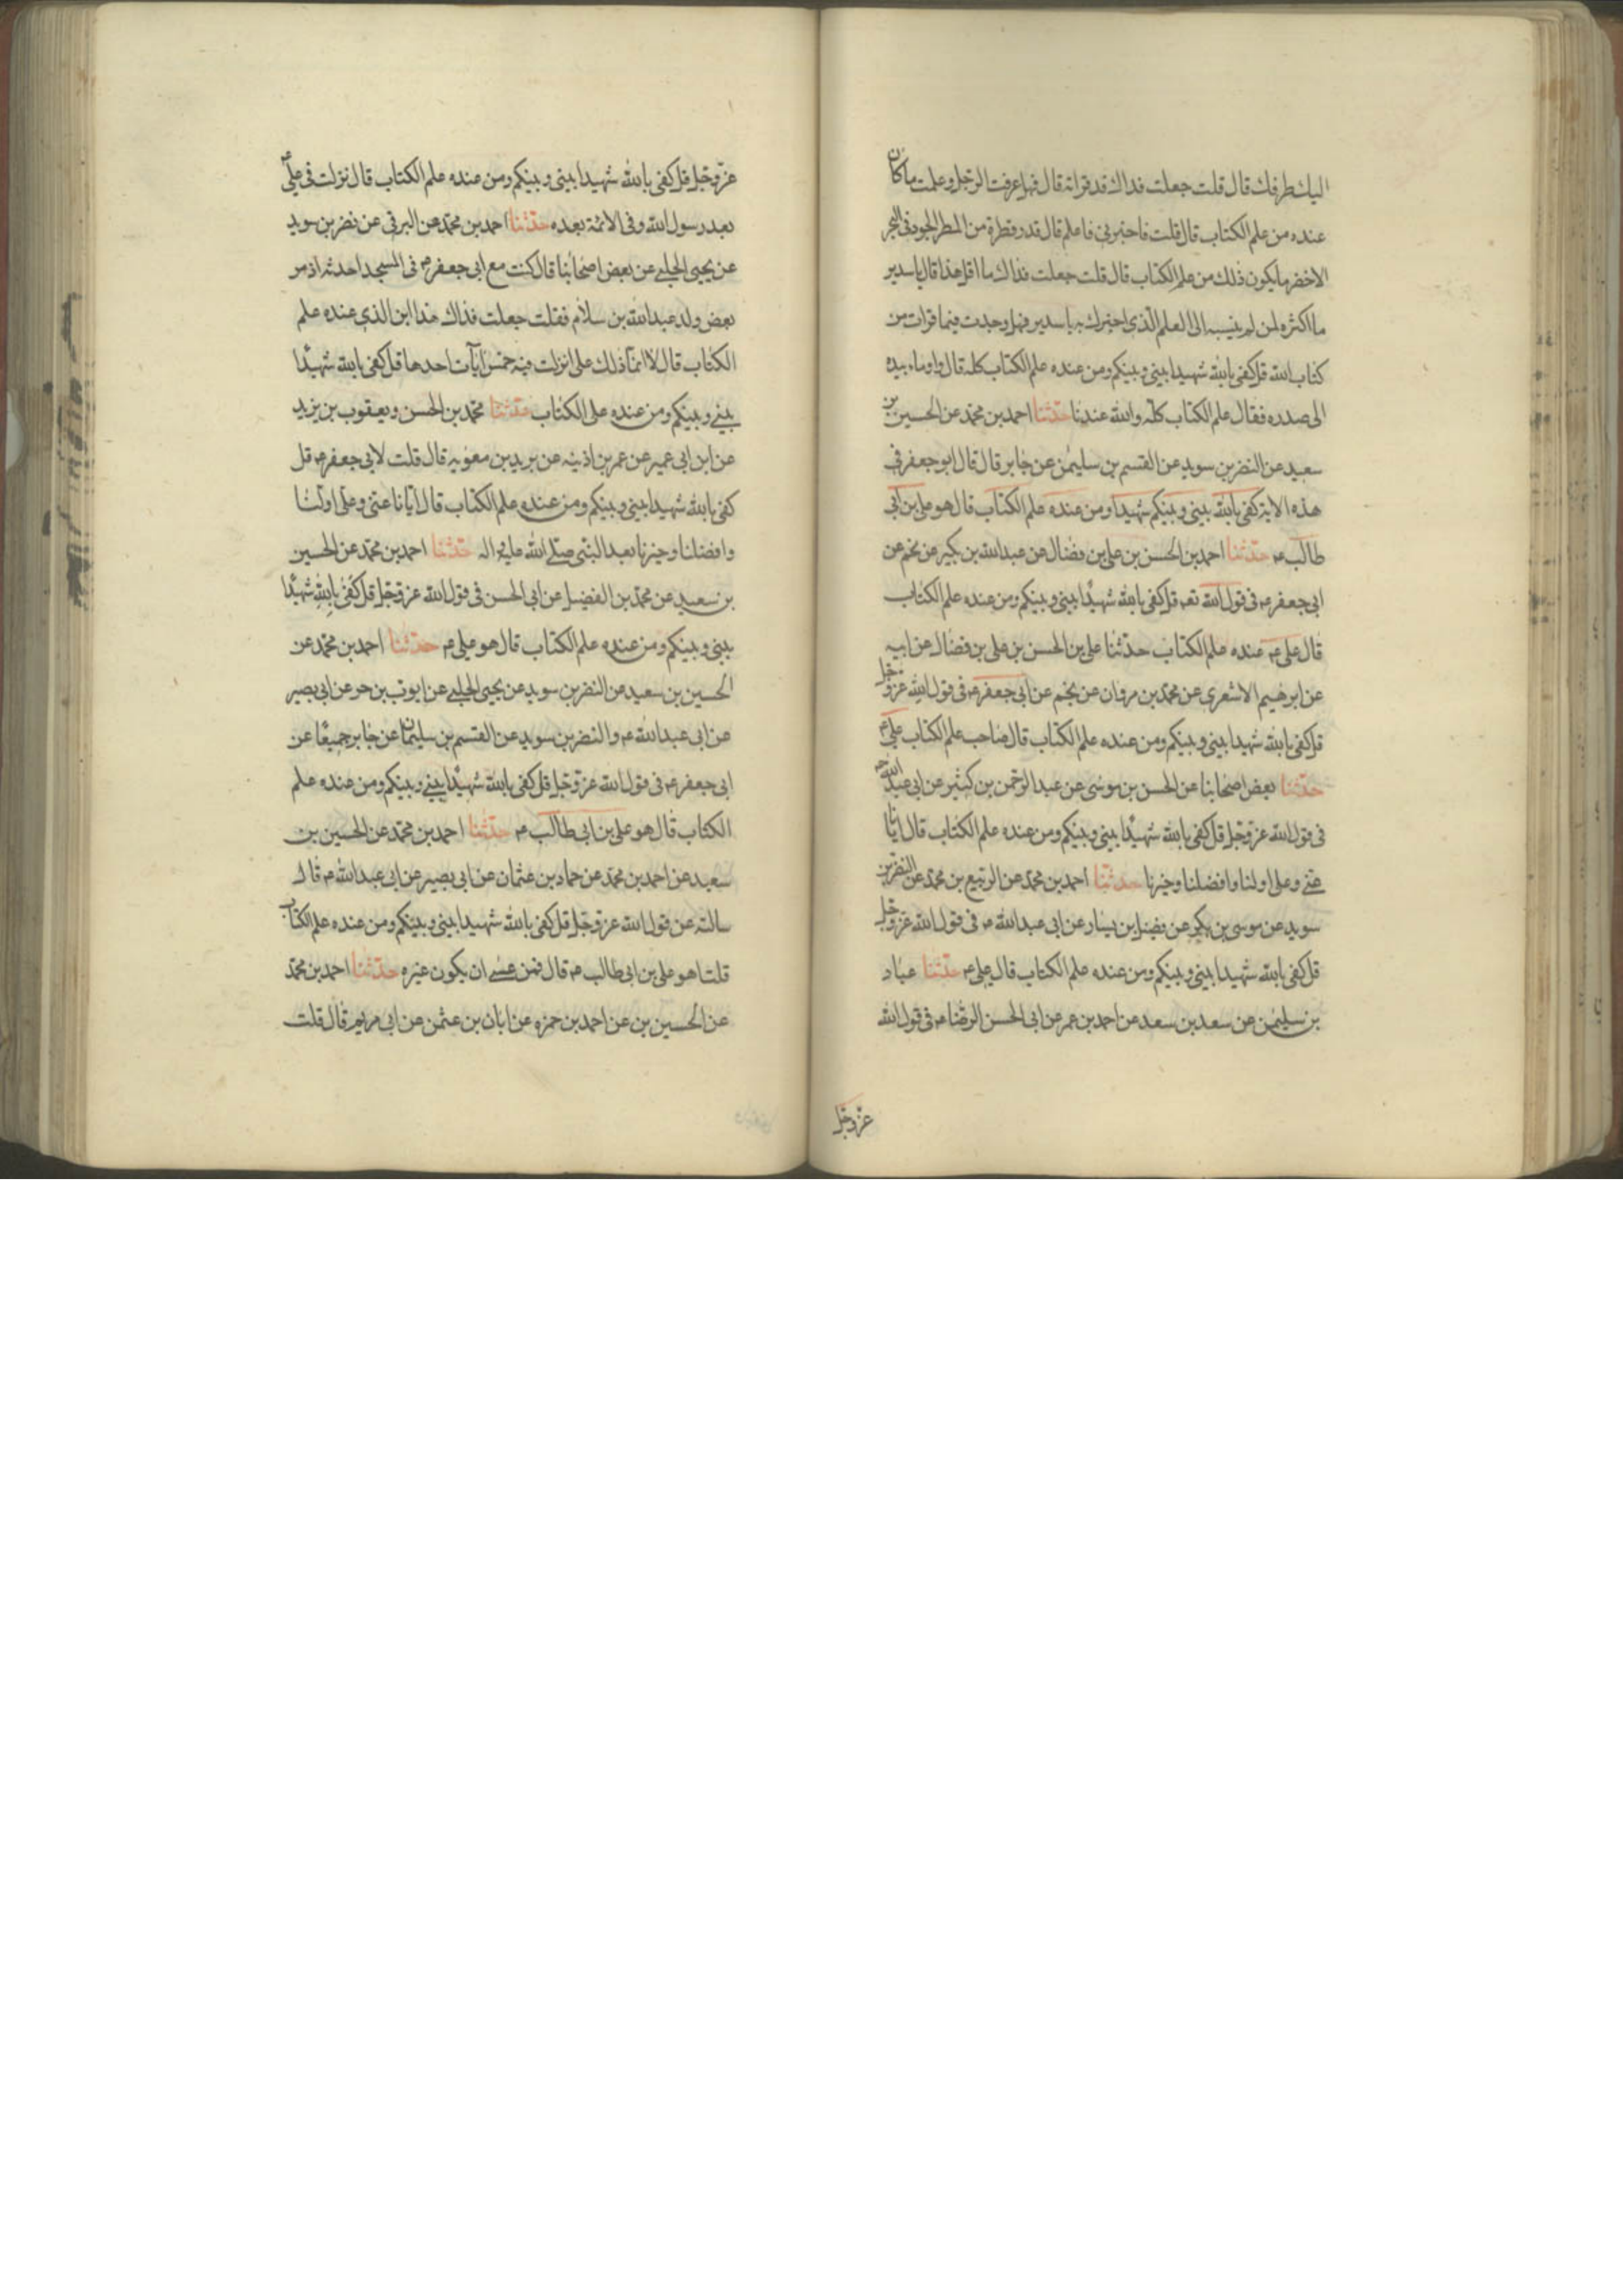 اليك طرفك قال قلت جعلت فداك قد قراته قال فهل عرفت الرجل وعلمت ما كان
عنده من علم الكتاب قال قلت فاخبرنى فاعلم قال قدر قطرة من المطر الجود فى البحر
الاخضر ما يكون ذلك من علم الكتاب قال قلت جعلت فداك ما اقل هذا قال يا سدير
ما اكثره لمن لم ينسبه الى العلم الذى اخبرك به يا سدير فهل وجدت فيما قرات من
كتاب الله قل كفى بالله شهيدا بينى وبينكم ومن عنده علم الكتاب كله قال واوماء بيده
الى صدره فقال علم الكتاب كله والله عندنا حدثنا احمد بن محمد عن الحسين بن
سعيد عن النضر بن سويد عن القسم بن سليمن عن جابر قال قال ابو جعفر فى
هذه الاية كفى بالله بينى وبينكم شهيدا ومن عنده علم الكتاب قال هو على بن ابى
طالب ع حدثنا احمد بن الحسن بن على بن فضال عن عبد الله بن بكير عن نجم عن
ابى جعفر ع فى قول الله تعه قل كفى بالله شهيدا بينى وبينكم ومن عنده علم الكتاب
قال على ع عنده علم الكتاب حدثنا على بن الحسن بن على بن فضال عن ابيه
عن ابرهيم الاشعرى عن محمد بن مروان عن نجم عن ابى جعفر ع فى قول الله عز وجل
قل كفى بالله شهيدا بينى وبينكم ومن عنده علم الكتاب قال صاحب علم الكتاب على ع
حدثنا بعض اصحابنا عن الحسن بن موسى عن عبد الرحمن بن كثير عن ابى عبد الله ع
فى قول الله عز وجل قل كفى بالله شهيدا بينى وبينكم ومن عنده علم الكتاب قال ايانا
عنى وعلى اولنا وافضلنا وخيرنا حدثنا احمد بن محمد عن الربيع بن محمد عن النضر بن
سويد عن موسى بن بكير عن فضيل بن يسار عن ابى عبد الله ع فى قول الله عز وجل
قل كفى بالله شهيدا بينى وبينكم ومن عنده علم الكتاب قال على ع حدثنا عباد
بن سليمن عن سعد بن سعد عن احمد بن عمر عن ابى الحسن الرضا ع فى قول الله
عز وجل
عز وجل قل كفى بالله شهيدا بينى وبينكم ومن عنده علم الكتاب قال نزلت فى على ع
بعد رسول الله وفى الائمة بعده حدثنا احمد بن محمد عن البرقى عن نضر بن سويد
عن يحيى الحلبى عن بعض اصحابنا قال كنت مع ابى جعفر ع فى المسجد احدثه اذ مر
بعض ولد عبد الله بن سلام فقلت جعلت فداك هذا ابن الذى عنده علم
الكتاب قال لا انما ذلك على انزلت فيه خمس ايات احدها قل كفى بالله شهيدا
بينى وبينكم ومن عنده على الكتاب حدثنا محمد بن الحسن ويعقوب بن يزيد
عن ابن ابى عمير عن عمر بن اذينه عن بريد بن معويه قال قلت لابى جعفر ع قل
كفى بالله شهيدا بينى وبينكم ومن عنده علم الكتاب قال ايانا عنى وعلى اولنا
وافضلنا وخيرنا بعد النبى صلى الله عليه واله حدثنا احمد بن محمد عن الحسين
بن سعيد عن محمد بن الفضيل عن ابى الحسن فى قول الله عز وجل قل كفى بالله شهيدا
بينى وبينكم ومن عنده علم الكتاب قال هو على ع حدثنا احمد بن محمد عن
الحسين بن سعيد عن النضر بن سويد عن يحيى الحلبى عن ايوب بن حر عن ابى بصير
عن ابى عبد الله ع والنضر بن سويد عن القسم بن سليمان عن جابر جميعا عن
ابى جعفر ع فى قول الله عز وجل قل كفى بالله شهيدا بينى وبينكم ومن عنده علم
الكتاب قال هو على بن ابى طالب ع حدثنا احمد بن محمد عن الحسين بن
سعيد عن احمد بن محمد عن حماد بن عثمان عن ابى بصير عن ابى عبد الله ع قال
سالته عن قول الله عز وجل قل كفى بالله شهيدا بينى وبينكم ومن عنده علم الكتاب
قلت اهو على بن ابى طالب ع قال فمن عسى ان يكون غيره حدثنا احمد بن محمد
عن الحسين بن عن احمد بن حمزه عن ابان بن عثمن عن ابى مريم قال قلت